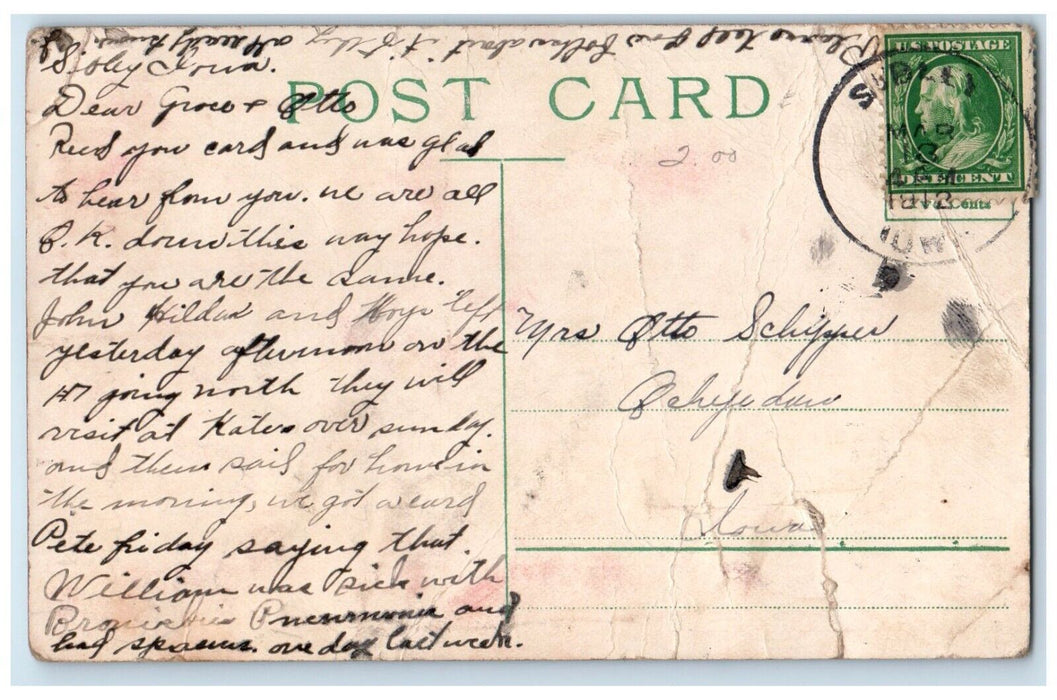 Sibley Iowa.
POST CARD
Dear Grace + Otto
Recd you card and was glad
to hear from you. we are all
O.K. down this way hope.
that you are the same.
John Hilda and left
yesterday afternoon on the
going north they will
visit at Kates over sunday.
and then said for home in
the morning, we got a card
Pete friday saying that
William was sick with
Pneurmonia and
had spasms. one day last week.
2.00
U.S. POSTAGE
ONE CENT
SIBLEY
MAR
1912
IOWA
Two Cents
Mrs Otto Schipper
Ocheyedan
Iowa